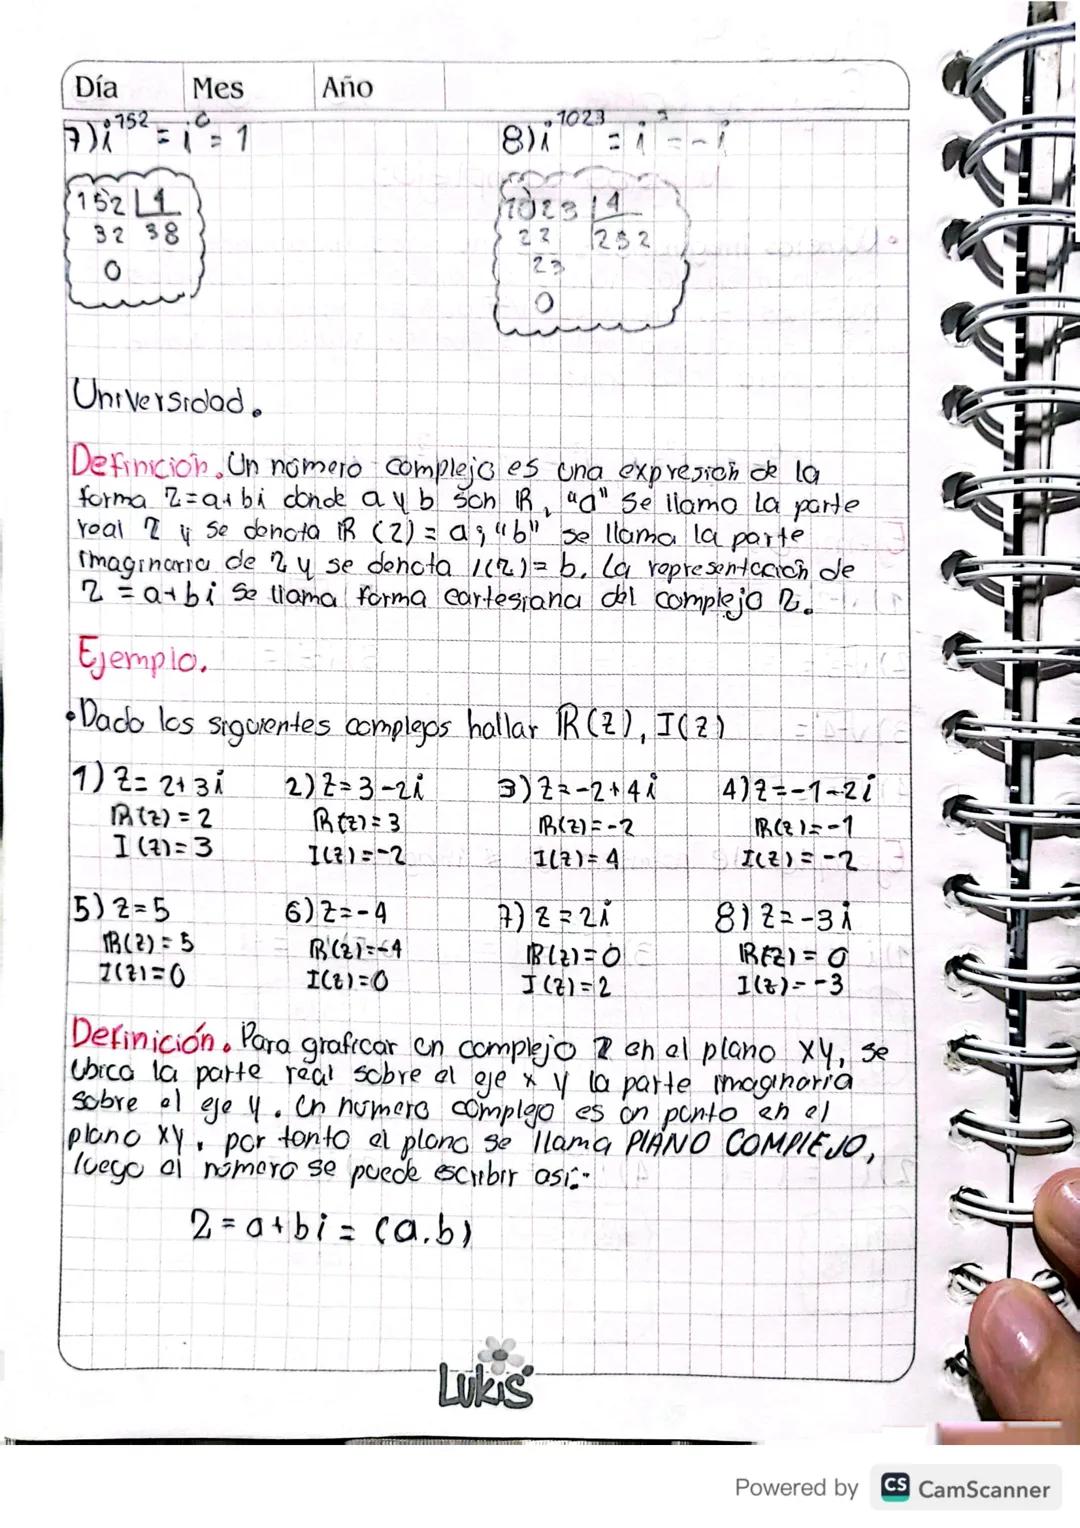 Día Mes Año
7) i^152 = i^0 = 1
8) i^1023 = i^3 = -i
152 4
32 38
0
1023 4
22 252
23
0
Universidad.
Definición. Un número complejo es una expresión de la
forma z=a+bi donde a y b son IR, "a" se llamo la parte
real z y se denota IR (z) = a; "b" se llama la parte
imaginaria de z y se denota I(z)= b. La representación de
z = a+bi se llama forma cartesiana del complejo z.
Ejemplo.
•Dado los siguientes complejos hallar IR(z), I(z)
1) z= 2+3i 2) z=3-2i 3) z=-2+4i 4) z=-1-2i
IR(z)=2 IR(z)=3 IR(z)=-2 IR(z)=-1
I(z)=3 I(z)=-2 I(z)=4 I(z)=-2
5) z=5 6) z=-4 7) z=2i 8) z=-3i
IR(z)=5 IR(z)=-4 IR(z)=0 IR(z)=0
I(z)=0 I(z)=0 I(z)=2 I(z)=-3
Definición. Para graficar un complejo z en el plano xy, se
ubica la parte real sobre el eje x y la parte imaginaria
sobre el eje y. Un número complejo es un punto en el
plano xy, por tanto el plano se llama PLANO COMPLEJO,
luego el número se puede escribir asi:-
z = a+bi = (a.b)
Lukis
Powered by CS CamScanner